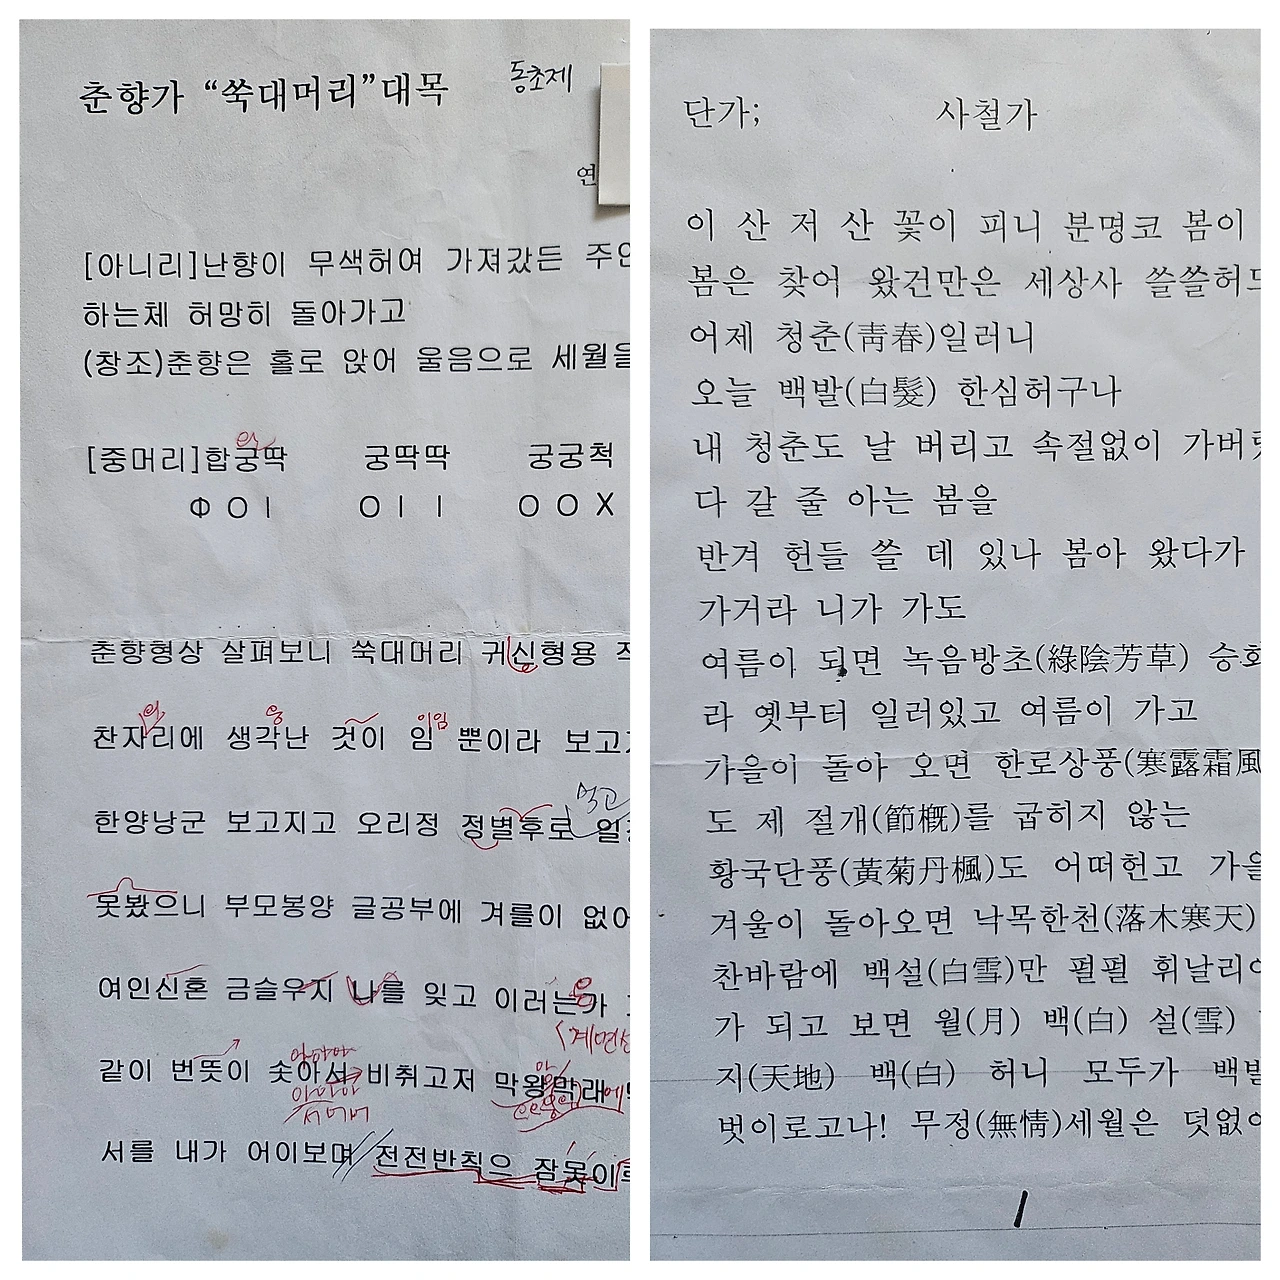 춘향가 “쑥대머리”대목 동초제
연
[아니리]난향이 무색허여 가져갔든
하는체 허망히 돌아가고
(창조)춘향은 홀로 앉어 울음으로 세월을
[중머리]합궁딱 궁딱딱 궁궁척
Φ O I O I I O O X
춘향형상 살펴보니 쑥대머리 귀신형용
찬자리에 생각난 것이 임 뿐이라
이임
먹고
한양낭군 보고지고 오리정 정별후로
못봤으니 부모봉양 글공부에 겨를이
여인신혼 금슬우지 나를 잊고 이러는가
(계면
같이 번뜻이 솟아서 비취고저 막왕막래
서를 내가 어이보며 전전반칙으 잠못이
단가; 사철가
이 산 저 산 꽃이 피니 분명코 봄이
봄은 찾어 왔건만은 세상사 쓸쓸허
어제 청춘(靑春)일러니
오늘 백발(白髮) 한심허구나
내 청춘도 날 버리고 속절없이
다 갈 줄 아는 봄을
반겨 헌들 쓸 데 있나 봄아 왔다가
가거라 니가 가도
여름이 되면 녹음방초(綠陰芳草)
라 옛부터 일러있고 여름이 가고
가을이 돌아 오면 한로상풍(寒露霜風
도 제 절개(節槪)를 굽히지 않는
황국단풍(黃菊丹楓)도 어떠헌고
겨울이 돌아오면 낙목한천(落木寒天)
찬바람에 백설(白雪)만 펄펄 휘날리
가 되고 보면 월(月) 백(白) 설(雪)
지(天地) 백(白) 허니 모두가
벗이로고나! 무정(無情)세월은
1